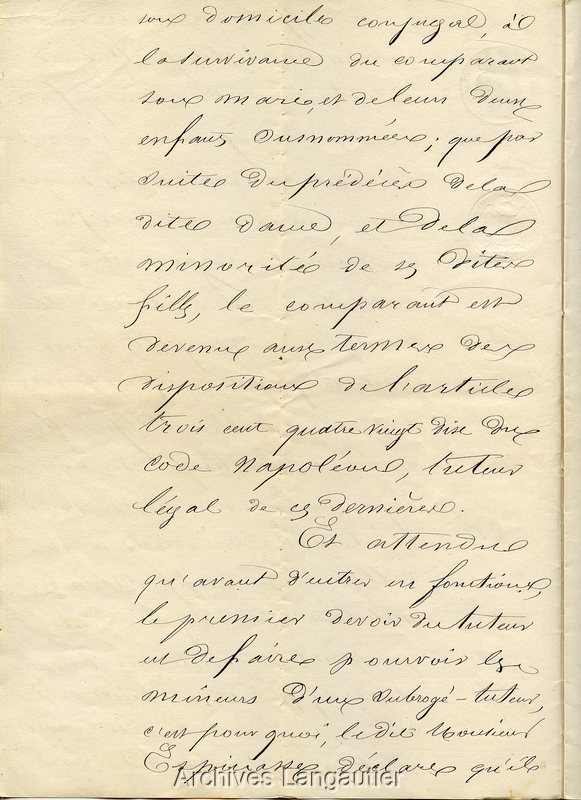 son domicile conjugal, à
la survivance du comparant
son mari, et de leurs deux
enfants susnommées; que par
suite du prédécès de la
dite dame, et de la
minorité de ses dites
filles, le comparant est
devenu aux termes des
dispositions de l'article
trois cent quatre vingt dix du
code Napoléon, tuteur
légal de ces dernières.
Et attendu
qu'avant d'entrer en fonctions,
le premier devoir du tuteur
est de faire pourvoir les
mineurs d'un subrogé-tuteur,
c'est pourquoi, le dit Monsieur
Espinasse déclare qu'il
Archives Langautier